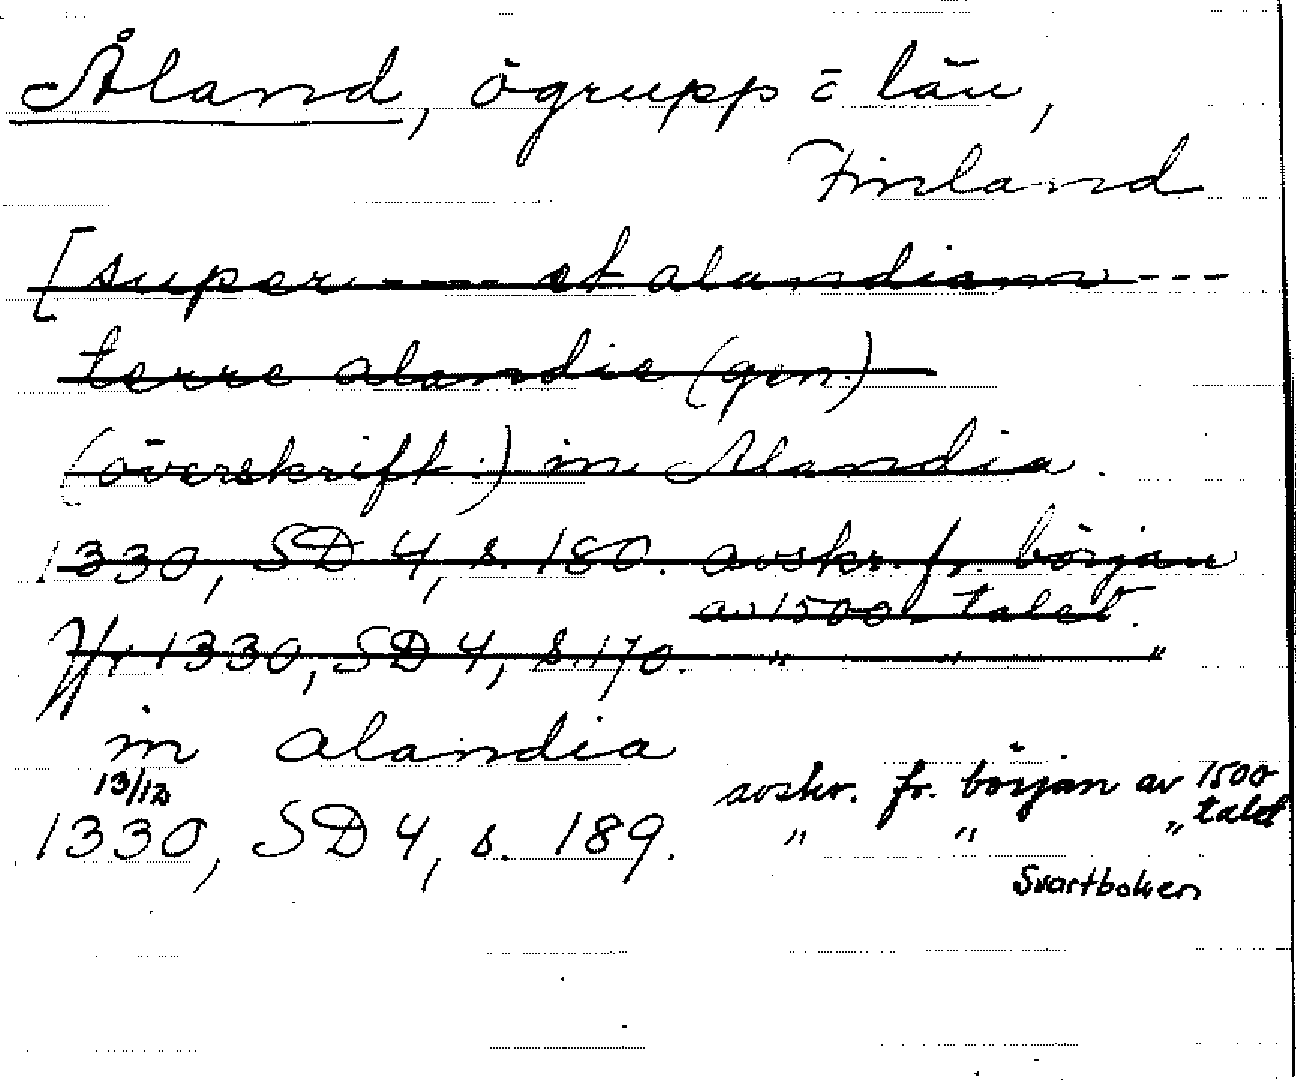 Åland, ögrupp = län,
Finland
[super --- et alandiam ---
terre alandie (gen.)
(överskrift.) in Alandia.
1330, SD 4, s. 180. avskr. fr. början
av 1500-talet.
Jfr 1330, SD 4, s. 170. " " "
in alandia
13/12 avskr. fr. början av 1500
talet
1330, SD 4, s. 189. " " "
Svartboken